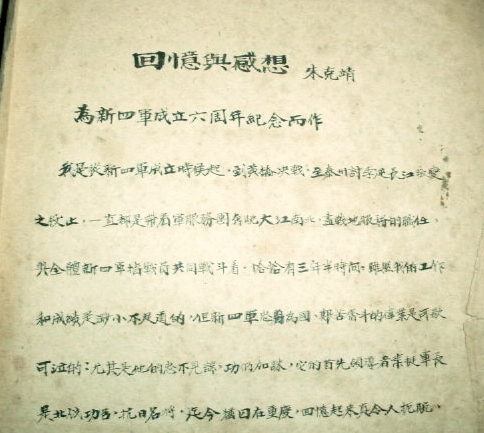 回憶與感想 朱克靖
為新四軍成立六周年紀念而作
我是從新四軍成立時候起，到黃橋決戰，至泰州討李定長江叛變
之役止，一直都是帶着軍服務團奔馳大江南北，盡戰地服務的職任，
與全體新四軍指戰員共同戰鬥着，恰恰有三年半時間，雖然我的工作
和成績是渺小不足道的，但新四軍忠勇為國，艱苦奮鬥的偉業是可歌
可泣的；尤其是他的忠不見諒，功仍加誅，它的首先領導者葉挺軍長
是北伐功臣，抗日名將，迄今猶囚在重慶，回憶起來真令人扼腕，